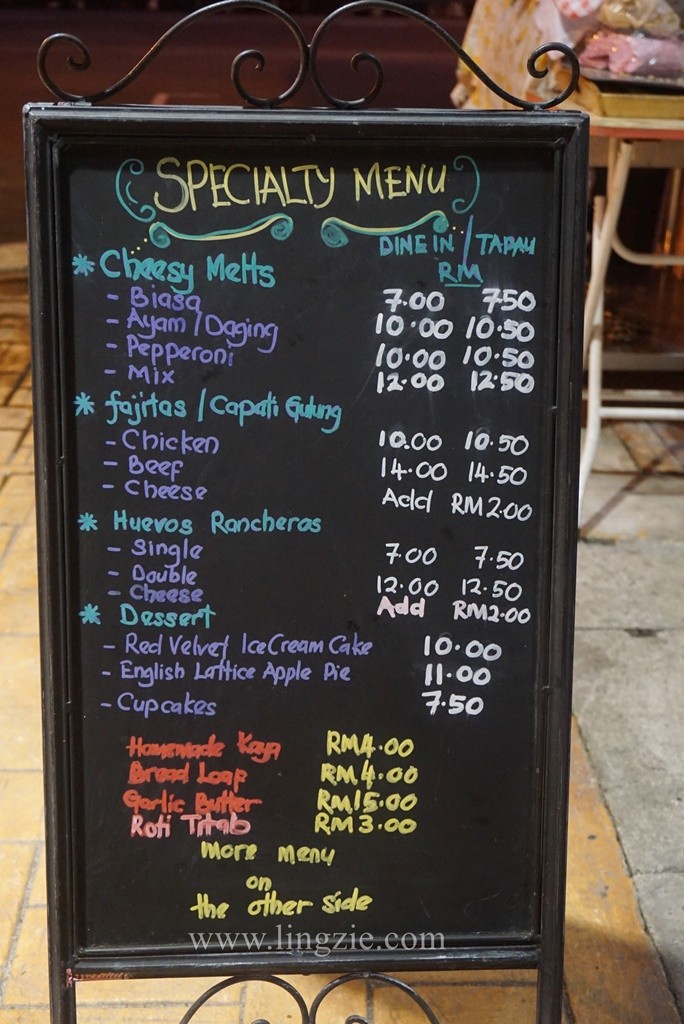 SPECIALTY MENU
DINE IN / TAPAU
RM
* Cheesy Melts
- Biasa 7.00 7.50
- Ayam / Daging 10.00 10.50
- Pepperoni 10.00 10.50
- Mix 12.00 12.50
* fajitas / Capati Gulung
- Chicken 10.00 10.50
- Beef 14.00 14.50
- Cheese Add RM2.00
* Huevos Rancheros
- Single 7.00 7.50
- Double 12.00 12.50
- Cheese Add RM2.00
* Dessert
- Red Velvet Ice Cream Cake 10.00
- English Lattice Apple Pie 11.00
- Cupcakes 7.50
Homemade Kaya RM4.00
Bread Loaf RM4.00
Garlic Butter RM15.00
Roti Titab RM3.00
More menu
on
the other side
www.lingzie.com